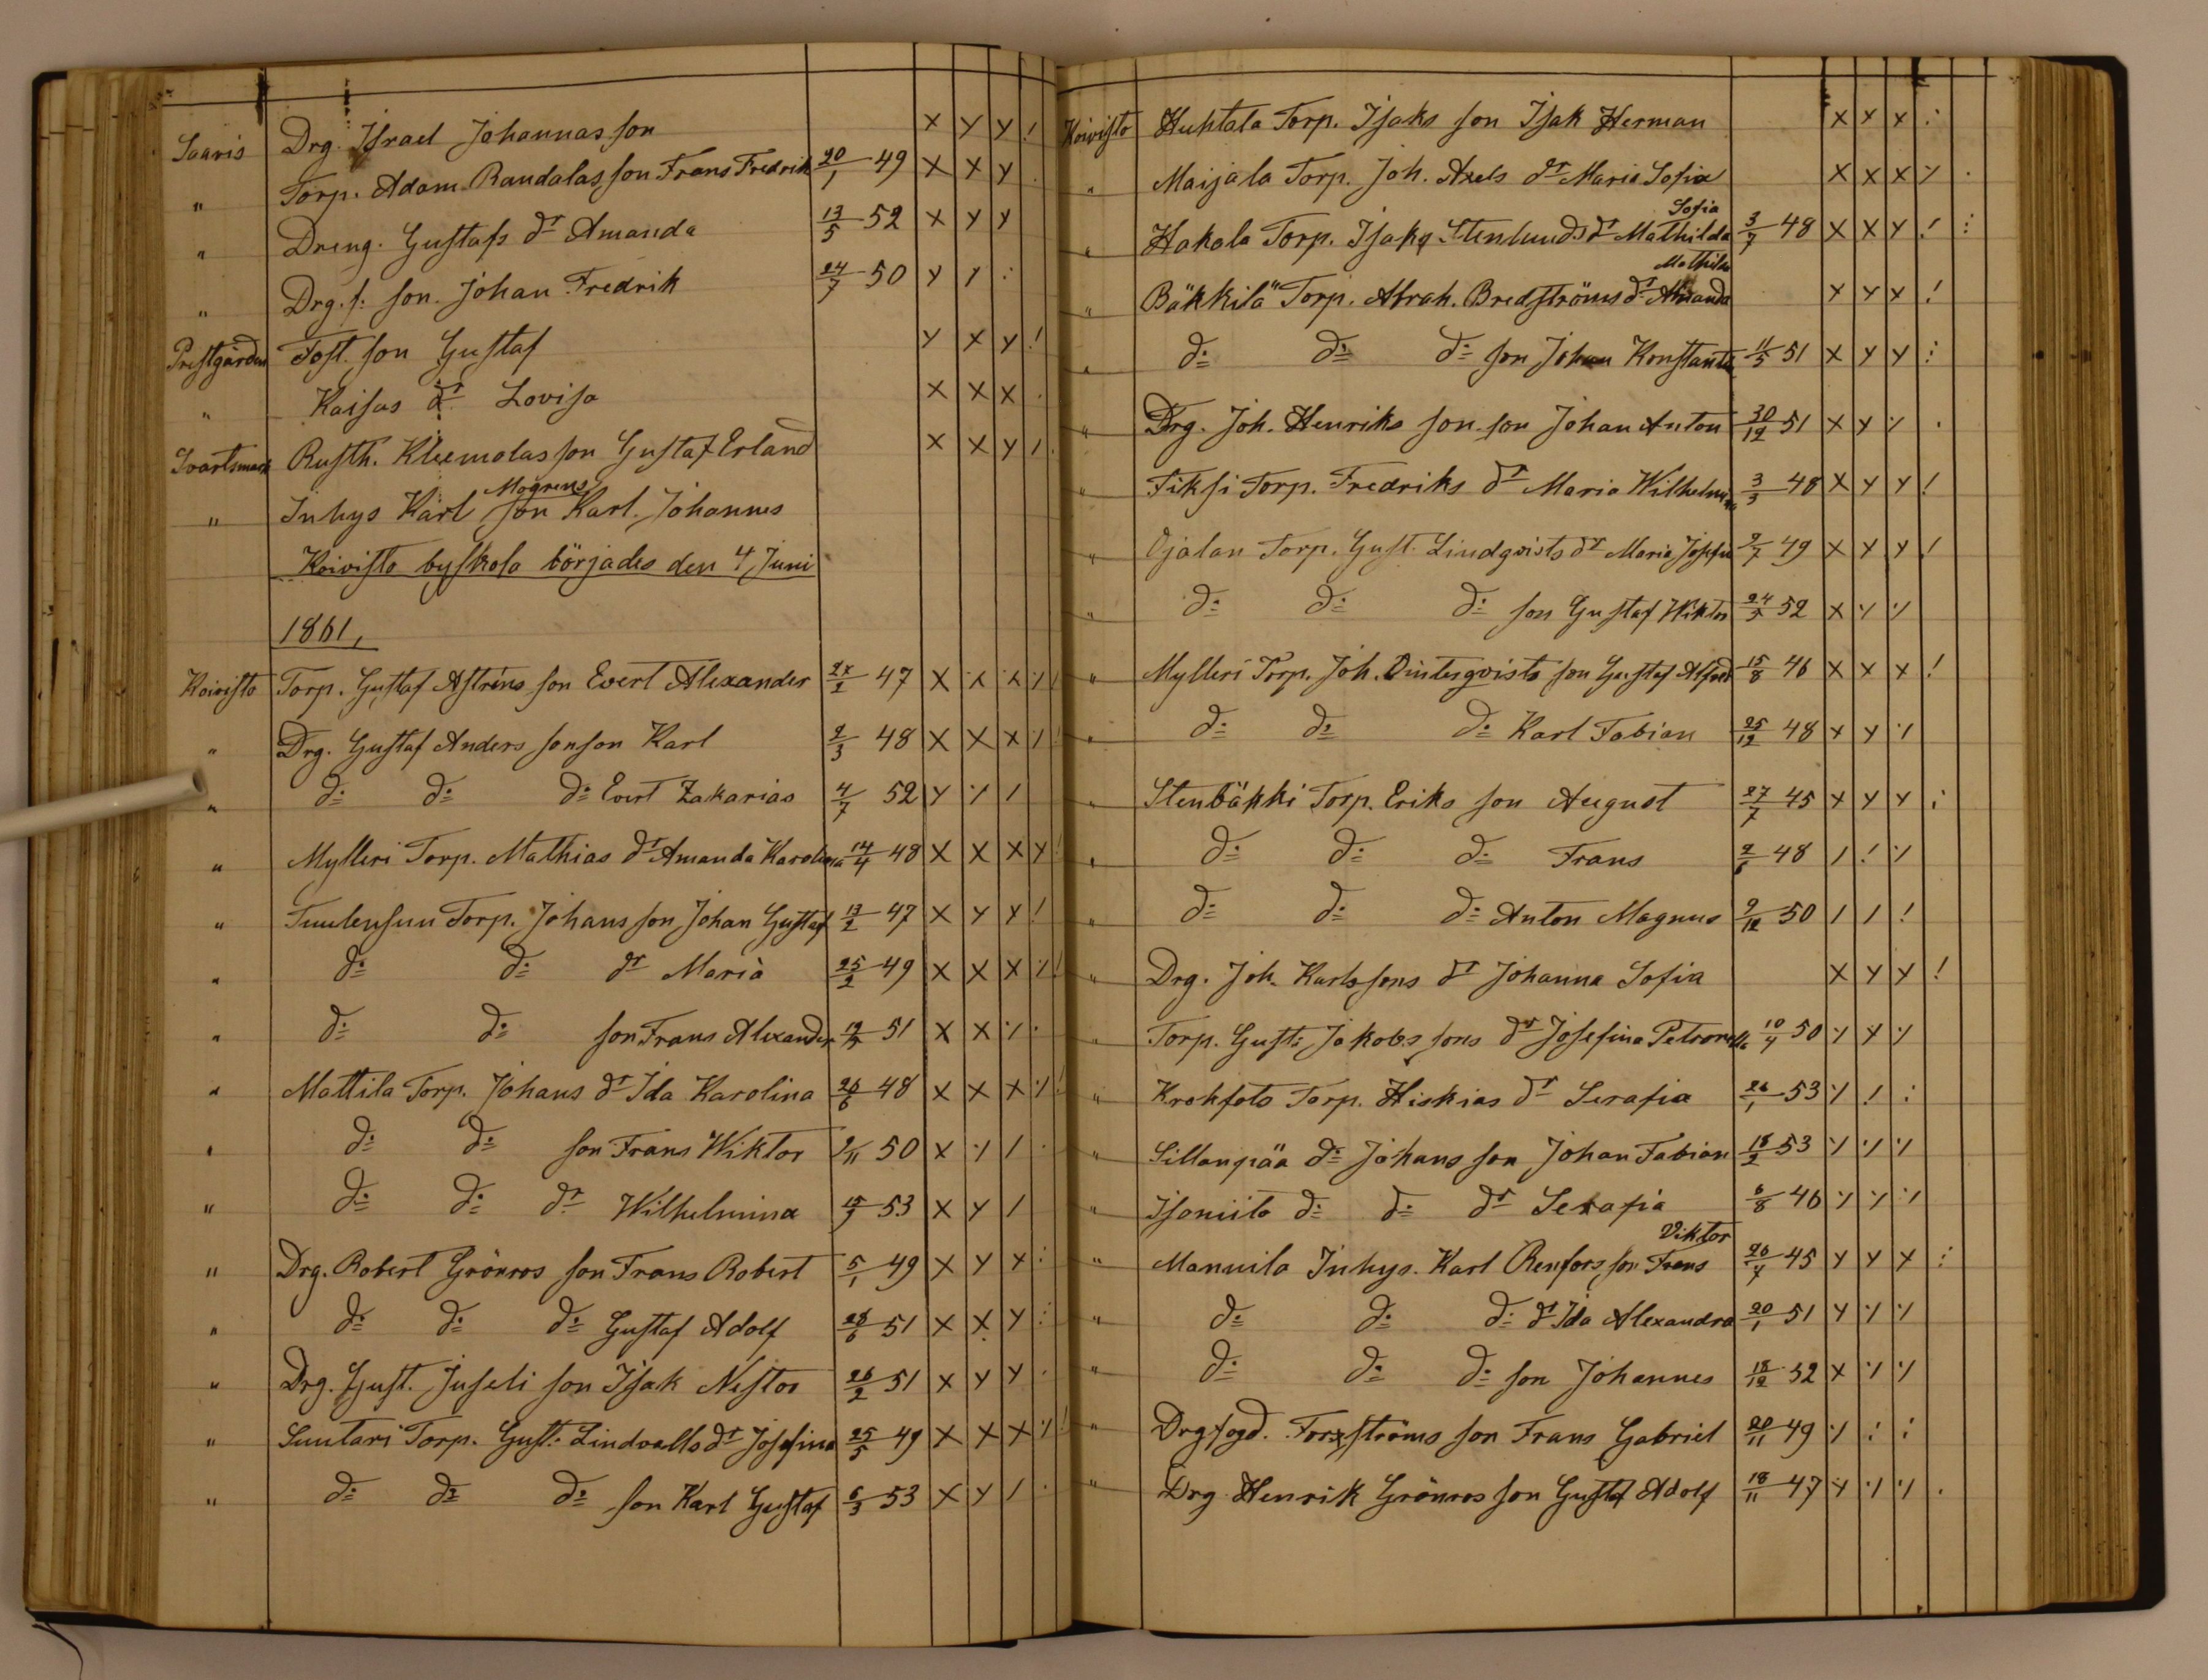 Saaris Drg. Israel Johannas son X Y Y !
" Torp. Adam Randalas son Frans Fredrik 20/1 49 X X Y .
" Dreng. Gustafs dr Amanda 13/5 52 X Y Y
" Drg. s: son Johan Fredrik 24/7 50 Y / :
Prestgården Tost. son Gustaf Y X Y !
" Kaisas dr Lovisa X X X .
Svartsmark Rusth. Kleemolas son Gustaf Erland X X Y /
Mogrens
" Inhys Karl son Karl Johannes
Koivisto byskola börjades den 4 Juni
1861,
Koivisto Torp. Gustaf Astréns son Evert Alexander 47 X X X
" Drg. Gustaf Anders sonson Karl 2/3 48 X X X
" d:o d:o d:o Evert Zakarias 4/7 52 Y ·/ /
" Mylleri Torp. Mathias dr Amanda Karolina 14/4 48 X X X Y !
" Tuulensuu Torp. Johans son Johan Gustaf 13/2 47 X Y Y !
" d:o d:o dr Maria 25/2 49 X X X ·/ !
" d:o d:o son Frans Alexander 51 X X ·/ ·
" Mattila Torp. Johans dr Ida Karolina 26/6 48 X X X ·/ !
" d:o d:o son Frans Wiktor 9/11 50 X ·/ / ·
" d:o d:o dr Wilhelmina 15/7 53 X Y /
" Drg. Robert Grönroos son Frans Robert 5/1 49 X Y X :
" d:o d:o d:o Gustaf Adolf 28/6 51 X X Y :
" Drg. Gust. Juseli son Isak Nestor 26/2 51 X Y Y ·
" Suutari Torp. Gust: Lindvalls dr Josefina 25/5 49 X X X ·/ !
" d:o d:o d:o son Karl Gustaf 6/3 53 X Y / ·
Koivisto Huhtala Torp. Isaks son Isak Herman X X X :
" Maijala Torp. Joh. Axels dr Maria Sofia X X X Y .
Sofia
" Hakala Torp. Isaks Stenlunds dr Mathilda 3/7 48 X X Y ! :
Mathilda
" Bäkkilä Torp. Abrah. Bredströms dr Amanda Y Y X !
" d:o d:o d:o son Johan Konstantin 11/5 51 X Y Y :
" Drg. Joh. Henriks son son Johan Anton 30/12 51 X Y ·/ .
" Fiksi Torp. Fredriks dr Maria Wilhelmina 3/3 48 X Y Y !
" Ojalan Torp. Gust. Lindqvists dr Maria Josefina 9/7 49 X Y Y !
" d:o d:o d:o son Gustaf Wiktor 52 X ·/ ·/
" Mylleri Torp. Joh. Qvintusqvists son Gustaf Alfred 15/8 46 X X X !
" d:o d:o d:o Karl Fabian 25/12 48 X Y ·/
" Stenbäkki Torp. Eriks son August 27/7 45 X Y Y :
" d:o d:o d:o Frans 48 / ! ·/
" d:o d:o d:o Anton Magnus 9/12 50 / / !
" Drg. Joh. Karlssons dr Johanna Sofia X Y Y !
" Torp. Gust: Jakobs sons dr Josefina Petronella 10/4 50 ·/ Y ·/
" Krokfots Torp. Hiskias dr Serafia 26/1 53 ·/ ! :
" Sillanpää d:o Johans son Johan Fabian 18/2 53 ·/ ·/ ·/
" Isoniito d:o d:o dr Serafia 6/8 46 ·/ ·/ ·/
Viktor
" Mannila Inhys. Karl Renfors son Frans 26/7 45 Y Y X :
" d:o d:o d:o dr Ida Alexandra 20/1 51 Y ·/ ·/
" d:o d:o d:o son Johannes 18/12 52 X ·/ ·/
" Drgfogd. Forsströms son Frans Gabriel 20/11 49 ·/ : :
" Drg Henrik Grönroos son Gustaf Adolf 18/11 47 Y ·/ ·/ .